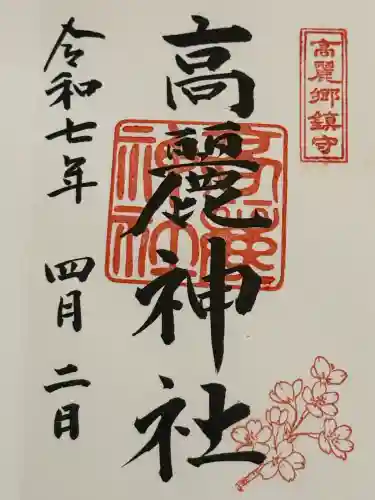 高麗郷鎮守
高麗神社
高麗神社
令和七年 四月二日